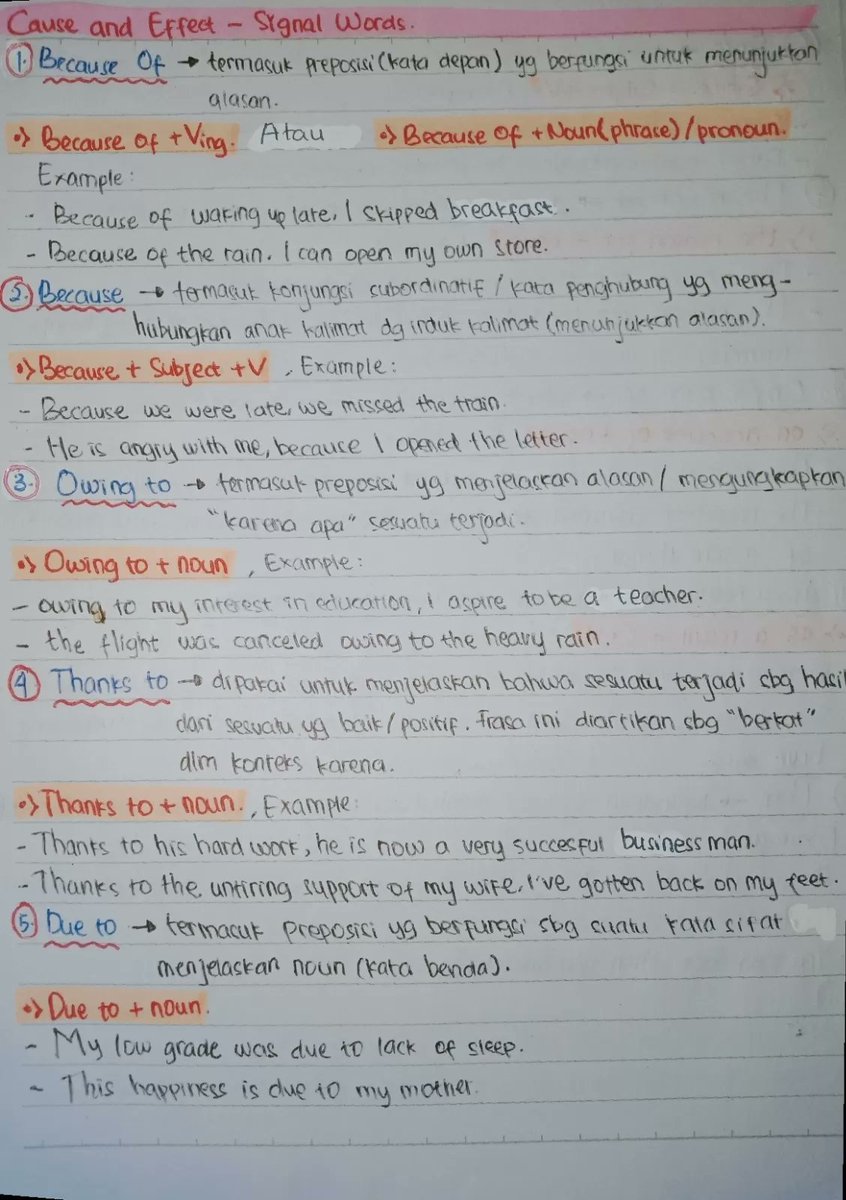 Cause and Effect - Signal Words.
1. Because Of → termasuk preposisi (kata depan) yg berfungsi untuk menunjukkan
alasan.
•> Because of + Ving. Atau •> Because of + Noun (phrase) / pronoun.
Example:
- Because of waking up late, I skipped breakfast.
- Because of the rain. I can open my own store.
2. Because → termasuk konjungsi subordinatif / kata penghubung yg meng-
hubungkan anak kalimat dg induk kalimat (menunjukkan alasan).
•> Because + Subject + V, Example:
- Because we were late, we missed the train.
- He is angry with me, because I opened the letter.
3. Owing to → termasuk preposisi yg menjelaskan alasan / mengungkapkan
"karena apa" sesuatu terjadi.
•> Owing to + noun, Example:
- owing to my interest in education, I aspire to be a teacher.
- the flight was canceled owing to the heavy rain.
4 Thanks to → dipakai untuk menjelaskan bahwa sesuatu terjadi sbg hasil
dari sesuatu yg baik / positif. frasa ini diartikan sbg "berkat"
dlm konteks karena.
•> Thanks to + noun., Example:
- Thanks to his hard work, he is now a very succesful business man.
- Thanks to the untiring support of my wife, I've gotten back on my feet.
5. Due to → termasuk preposisi yg berfungsi sbg suatu kata sifat
menjelaskan noun (kata benda).
•> Due to + noun.
- My low grade was due to lack of sleep.
- This happiness is due to my mother.